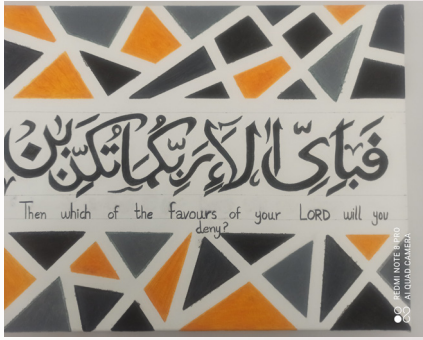 فَبِاَىِّ اٰلَآءِ رَبِّكُمَا تُكَذِّبٰنِ
Then which of the favours of your LORD will you
deny?
REDMI NOTE 8 PRO
AI QUAD CAMERA